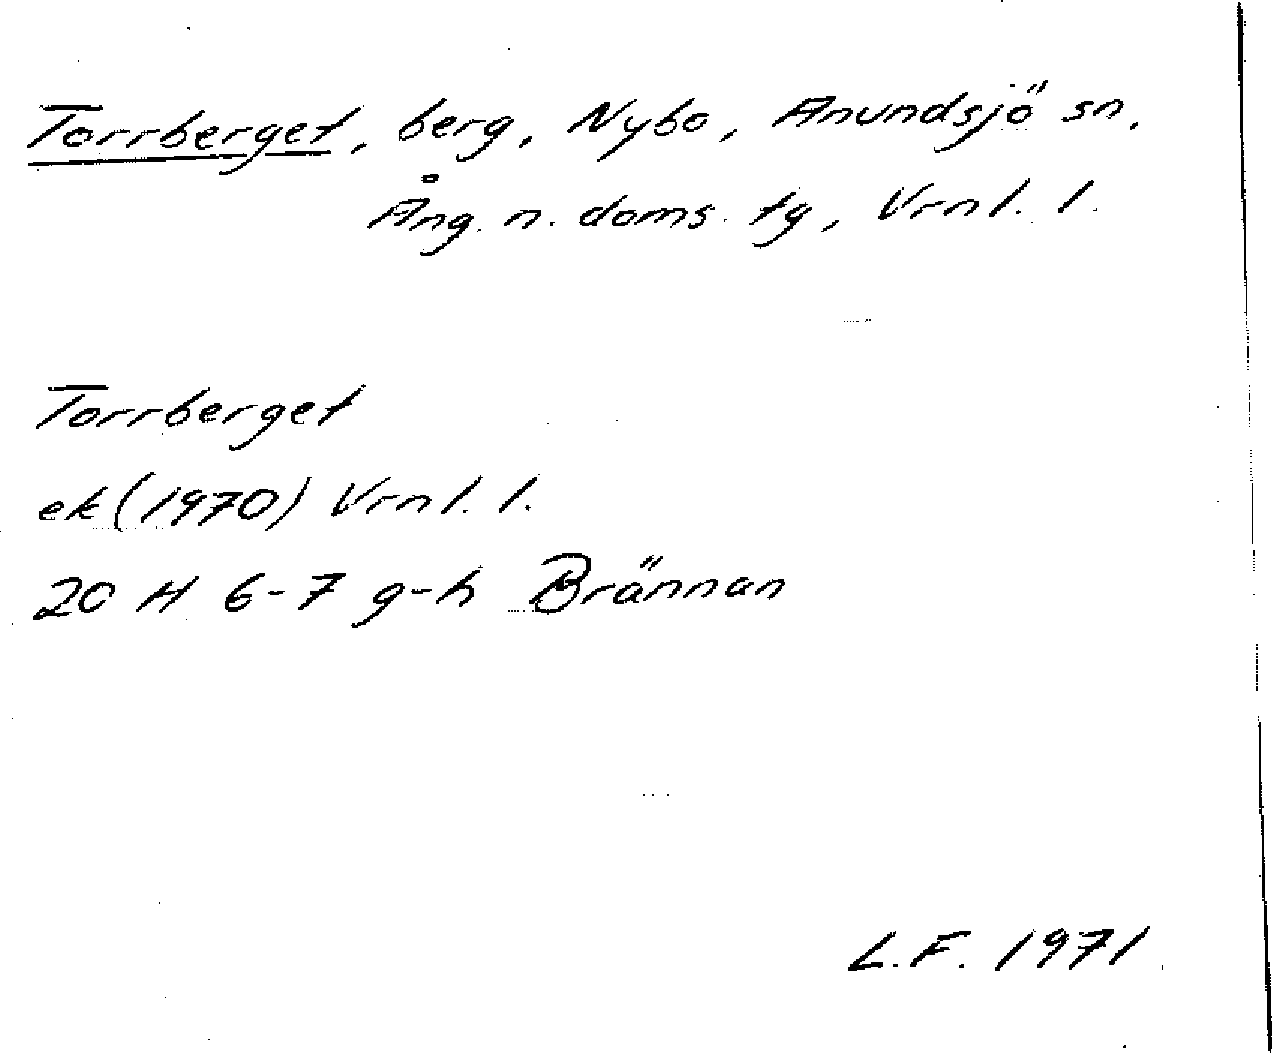 Torrberget, berg, Nybo, Anundsjö sn,
Ång. n. doms. tg, Vrnl. l.
Torrberget
ek (1970) Vrnl. l.
20 H 6-7 g-h Brännan
L.F. 1971